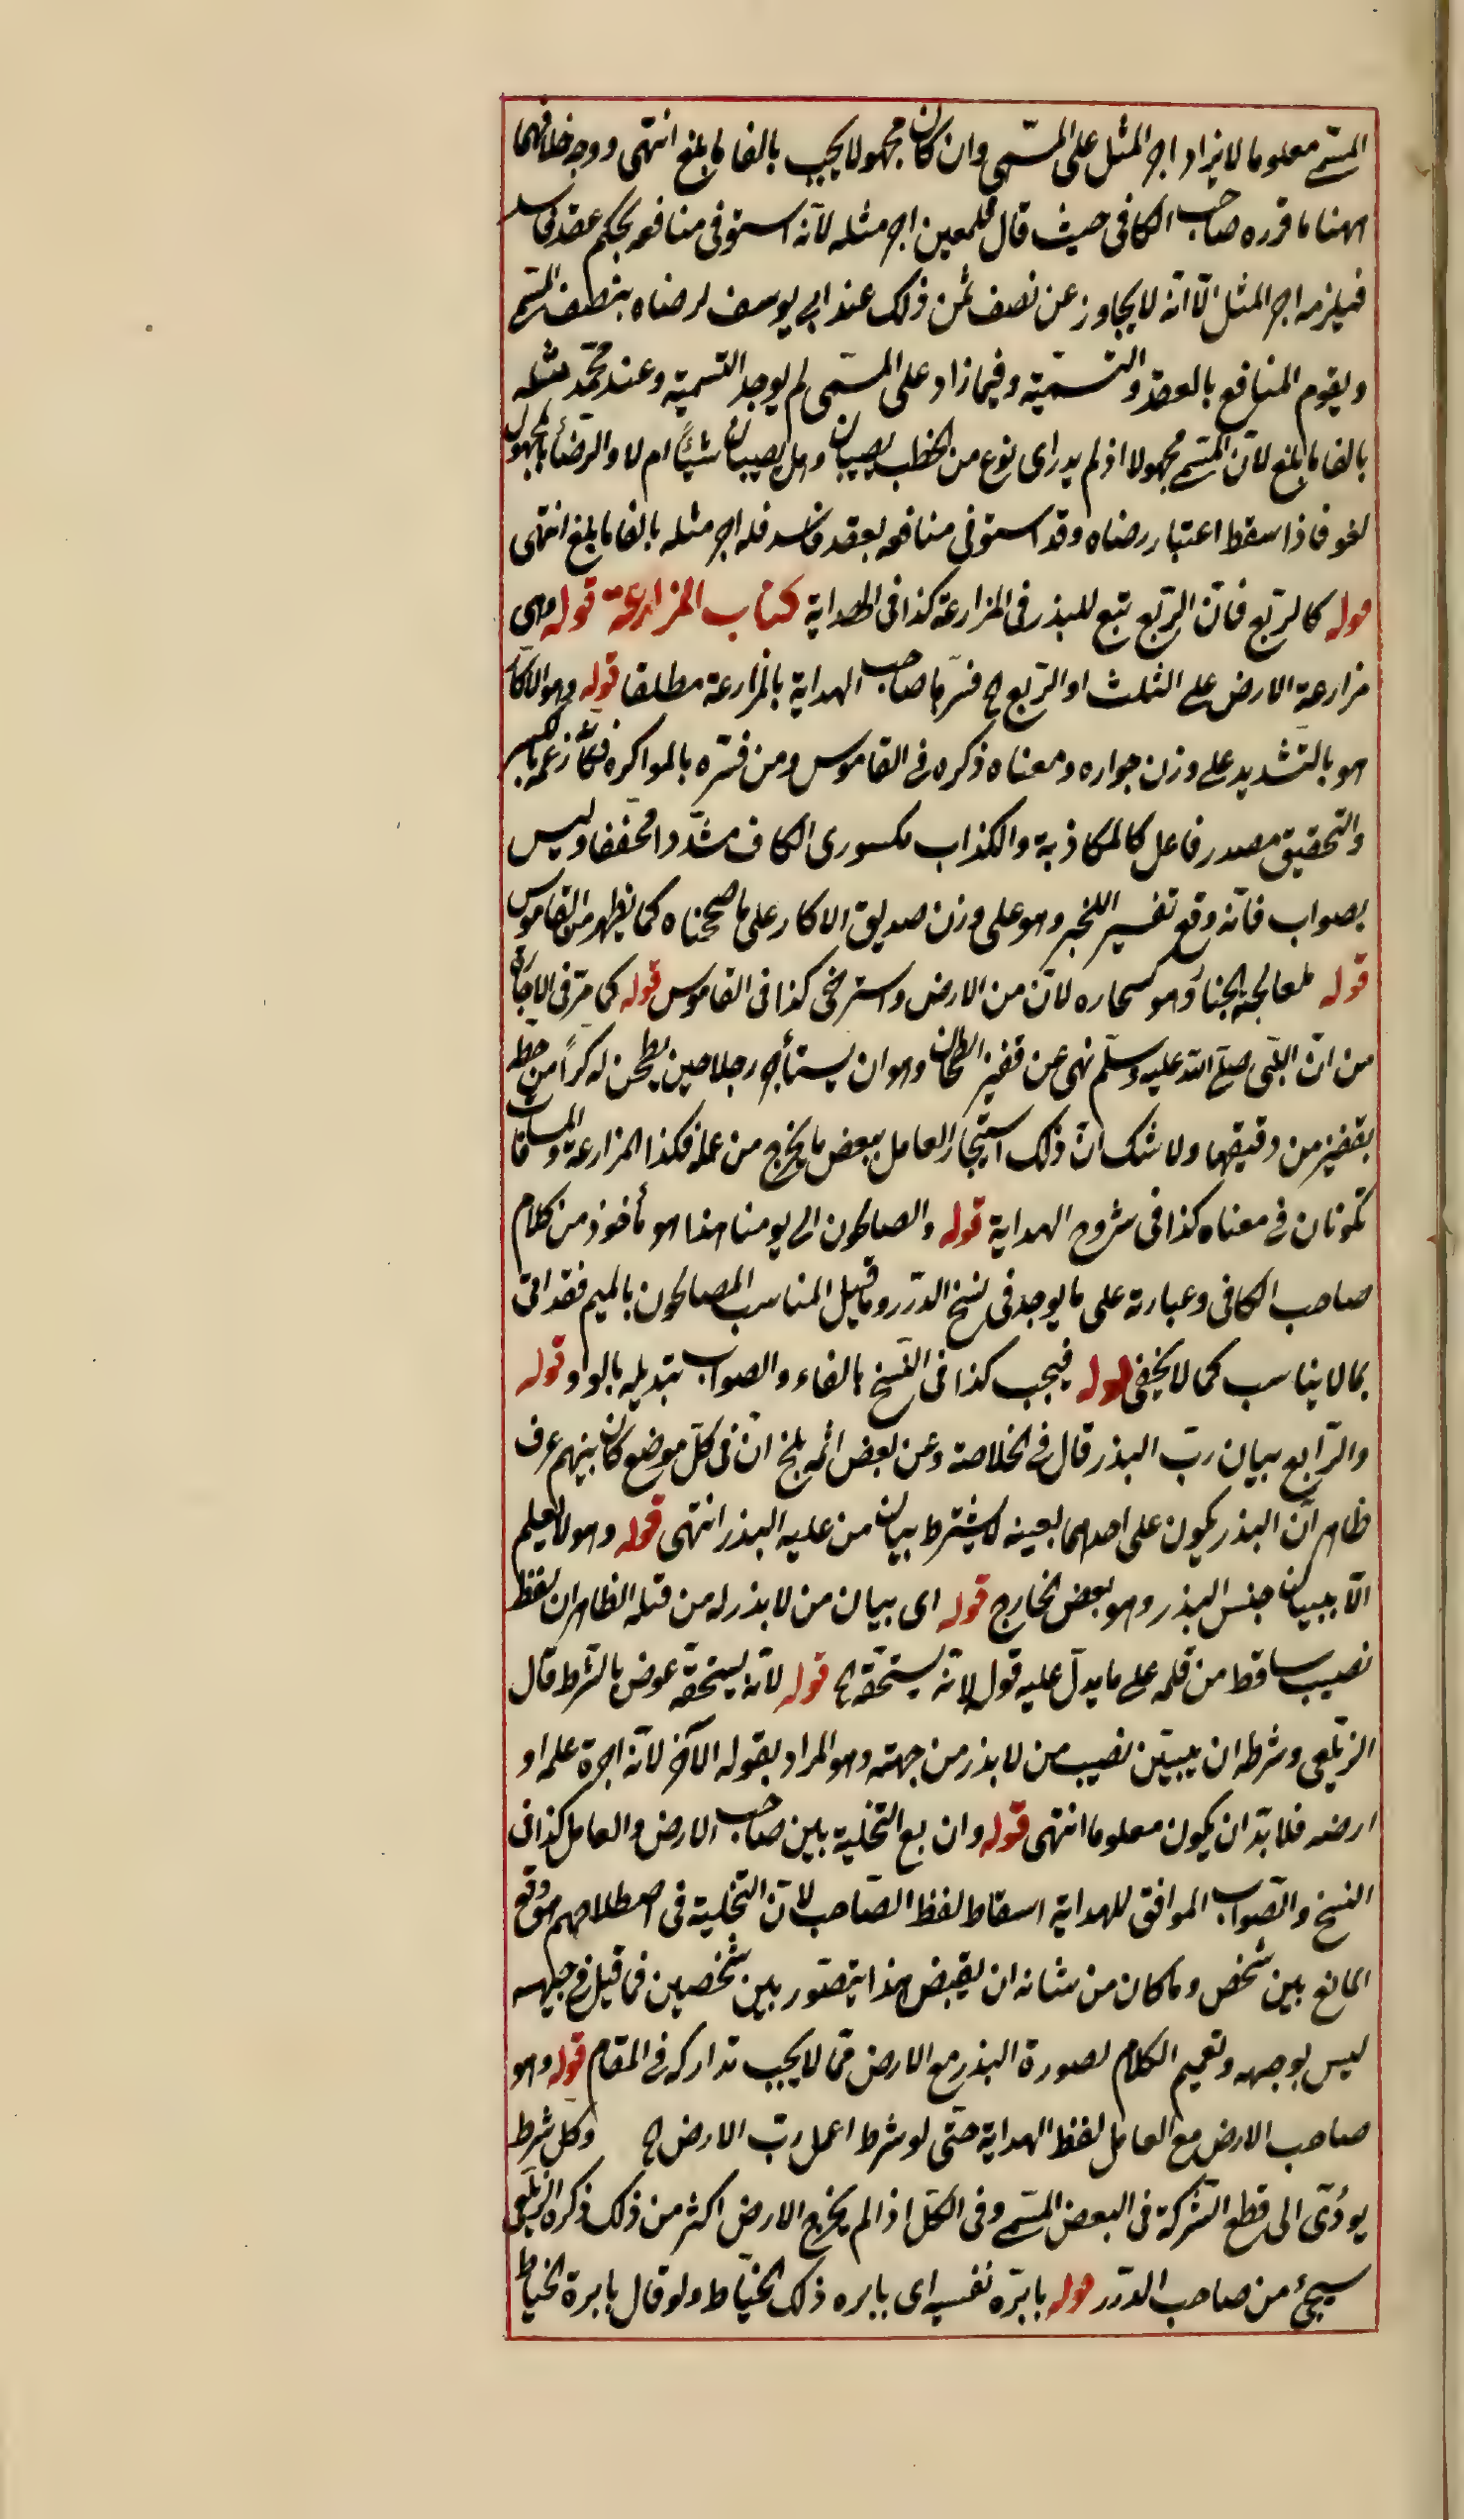 المسمى معلوما لا يزاد اجر المثل على المسمى وان كان مجهولا يجب بالغا ما بلغ انتهى ووجه خلافهما
ههنا ما قرره صاحب الكافى حيث قال فللمعين اجر مثله لانه استوفى منافعه بحكم عقد فاسد
فيلزمه اجر المثل الا انه لا يجاوز عن نصف ثمن ذلك عند ابى يوسف لرضاه بنصف المسمى
ويقوم المنافع بالعقد والتسمية وفيما زاد على المسمى لم يوجد التسمية وعند محمد مثله
بالغا ما بلغ لان المسمى مجهول اذ لم يدر اى نوع من الحطب يصيبان وهل يصيبان شيئا ام لا والرضأ بالمجهول
لغو فاذا سقط اعتبار رضاه وقد استوفى منافعه بعقد فاسد فله اجر مثله بالغا ما بلغ انتهى
قوله كالريع فان الريع تبع للبذر فى المزارعة كذا فى الهداية كتاب المزارعة قوله وهى
مزارعة الارض على الثلث او الربع الخ فسرها صاحب الهداية بالمزارعة مطلقا قوله وهو الاكار
هو بالتشديد على وزن جواره ومعناه ذكره فى القاموس ومن فسره بالمواكرة فكأنه زعمه بالكسر
والتحقيق مصدر فاعل كالمكاذبة والكذاب مكسورى الكاف مشددا مخففا وليس
بصواب فانه وقع تفسير اللخبر وهو على وزن صديق الاكار على ما صححناه كما يظهر من القاموس
قوله لمعالجة الخبأ وهو كسحاره لان من الارض واسترخى كذا فى القاموس قوله كما مر فى الاجارة
من ان النبى صلى الله عليه وسلم نهى عن قفيز الطحان وهو ان يستأجر رجلا حين يطحن له كرا من حنطة
بقفيز من دقيقها ولا شك ان ذلك استيجار العامل ببعض ما يخرج من عمله فكذا المزارعة والمساقاة
تكونان فى معناه كذا فى شروح الهداية قوله والصالحون الى يومنا هذا هو مأخوذ من كلام
صاحب الكافى وعبارته على ما يوجد فى نسخ الدرر وما قيل المناسب المصالحون بالميم فقد اتى
بما لا يناسب كما لا يخفى قوله فيجب كذا فى النسخ بالفاء والصواب تبديله بالواو قوله
والرابع بيان رب البذر قال فى الخلاصة وعن بعض ائمة بلخ ان فى كل موضع كان بينهم عرف
ظاهر ان البذر يكون على احدهما بعينه لا يشترط بيان من عليه البذر انتهى قوله وهو لا يعلم
الا ببيان جنس البذر وهو بعض الخارج قوله اى بيان من لا بذر له من قبله الظاهر ان لفظ
نصيب ساقط من قلمه على ما يدل عليه قول لانه يستحقه الخ قوله لانه يستحقه عوض بالشرط قال
الزيلعى وشرطه ان يبين نصيب من لا بذر من جهته وهو المراد بقوله الآخر لانه اجرة عمله او
ارضه فلا بد ان يكون معلوما انتهى قوله وان بع التخلية بين صاحب الارض والعامل كذا فى
النسخ والصواب الموافق للهداية اسقاط لفظ الصاحب لان التخلية فى اصطلاحهم هو رفع
المانع بين شخص وما كان من شانه ان يقبض هذا يتصور بين شخصين فما قيل فى توجيهه
ليس بوجهه وتعميم الكلام لصورة البذر مع الارض مما لا يجب تداركه فى المقام قوله وهو
صاحب الارض مع العامل لفظ الهداية حتى لو شرط اعمل رب الارض الخ وكل شرط
يؤدى الى قطع الشركة فى البعض المسمى وفى الكل اذا لم يخرج الارض اكثر من ذلك ذكره الزيلعى
سيجئ من صاحب الدرر قوله بابره نفسه اى بابره ذلك الخياط ولو قال بابرة الخياط